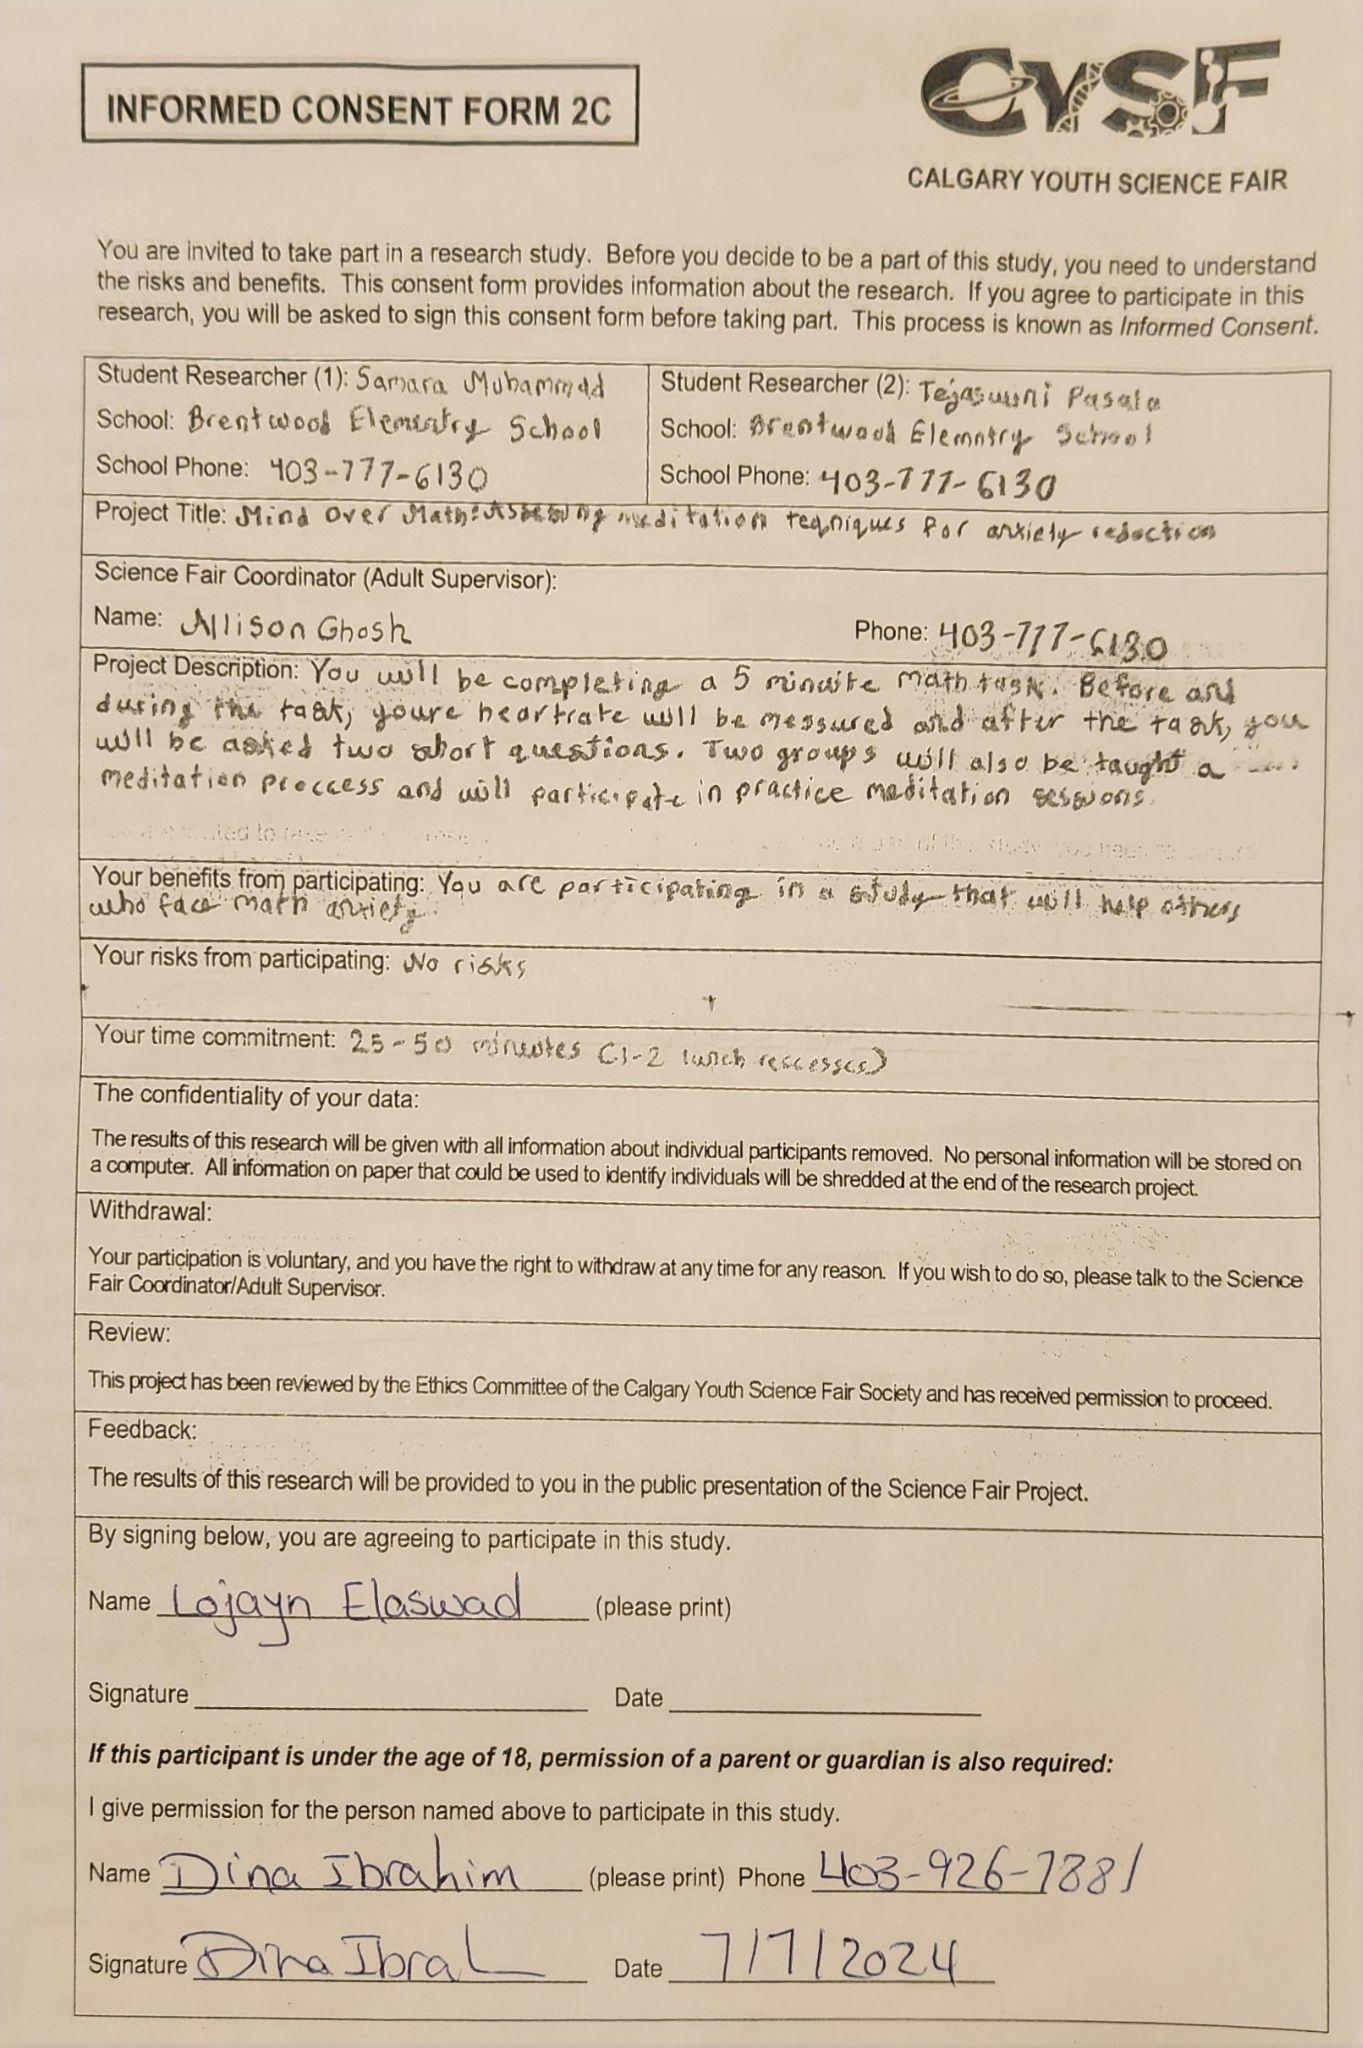 INFORMED CONSENT FORM 2C
CYSF
CALGARY YOUTH SCIENCE FAIR
You are invited to take part in a research study. Before you decide to be a part of this study, you need to understand
the risks and benefits. This consent form provides information about the research. If you agree to participate in this
research, you will be asked to sign this consent form before taking part. This process is known as Informed Consent.
Student Researcher (1): Samara Muhammad
School: Brentwood Elementry School
School Phone: 403-777-6130
Student Researcher (2): Pasala
School: Brentwood Elemntry School
School Phone: 403-777-6130
Project Title: Mind Over Math: Assessing meditation teqniques for anxiety reduction
Science Fair Coordinator (Adult Supervisor):
Name: Allison Ghosh Phone: 403-777-6130
Project Description: You will be completing a 5 minuite math task. Before and
during the task, youre heartrate will be messured and after the task, you
will be asked two short questions. Two groups will also be taught a
meditation proccess and will participate in practice meditation sessions.
Your benefits from participating: You are participating in a study that will help others
who face math anxiety.
Your risks from participating: No risks
Your time commitment: 25-50 minutes (1-2 lunch reccesses)
The confidentiality of your data:
The results of this research will be given with all information about individual participants removed. No personal information will be stored on
a computer. All information on paper that could be used to identify individuals will be shredded at the end of the research project.
Withdrawal:
Your participation is voluntary, and you have the right to withdraw at any time for any reason. If you wish to do so, please talk to the Science
Fair Coordinator/Adult Supervisor.
Review:
This project has been reviewed by the Ethics Committee of the Calgary Youth Science Fair Society and has received permission to proceed.
Feedback:
The results of this research will be provided to you in the public presentation of the Science Fair Project.
By signing below, you are agreeing to participate in this study.
Name Lojayn Elaswad (please print)
Signature Date
If this participant is under the age of 18, permission of a parent or guardian is also required:
I give permission for the person named above to participate in this study.
Name Dina Ibrahim (please print) Phone 403-926-7881
Signature Dina Ibrah Date 7/7/2024